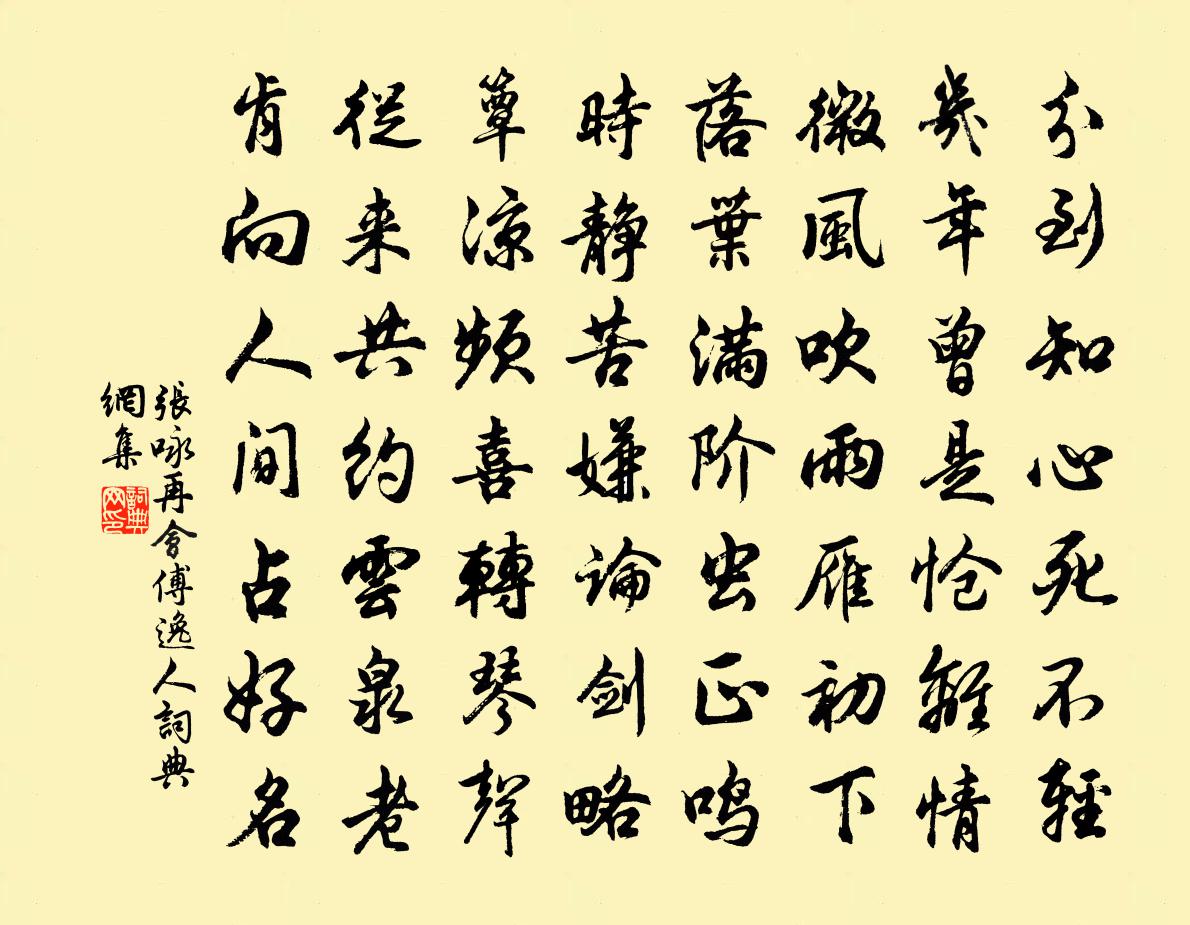 分到知心死不輕
幾年曾是怆離情
微風吹雨雁初下
落葉滿阶虫正鸣
時靜苦嫌論剑略
簟涼頻喜轉琴聲
從来共約雲泉老
肯向人间占好名
張咏再會傅逸人詞典
網集
詞典
网印